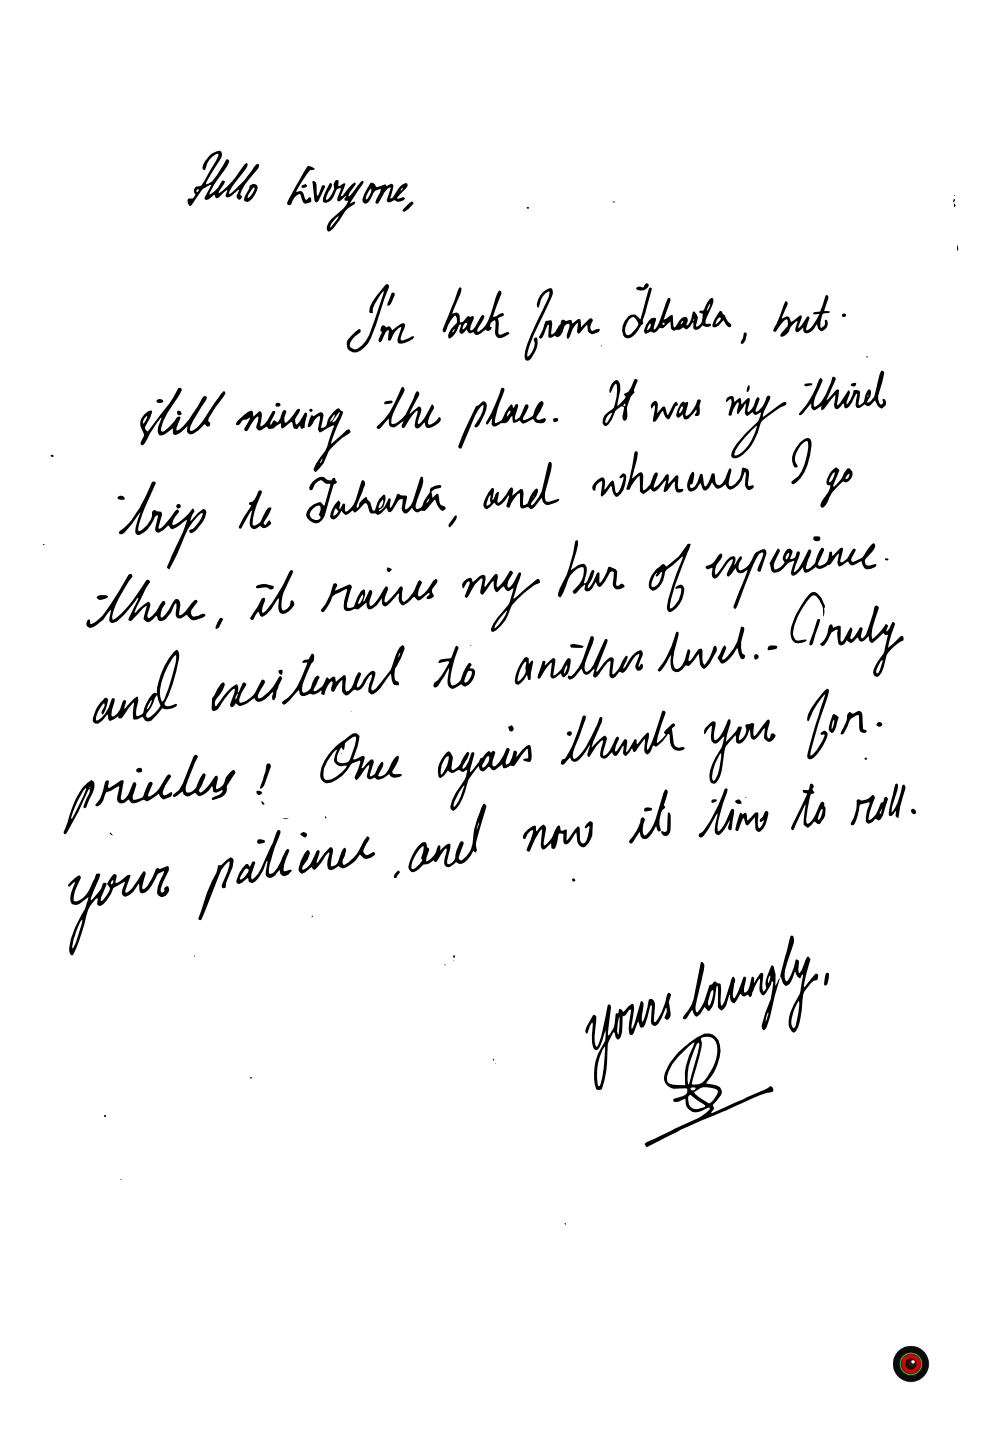 Hello Everyone,
I'm back from Jakarta, but
still missing the place. It was my third
trip to Jakarta, and whenever I go
there, it raises my bar of experience
and excitement to another level. - Truly
priceless! Once again thank you for
your patience, and now its time to roll.
yours lovingly,